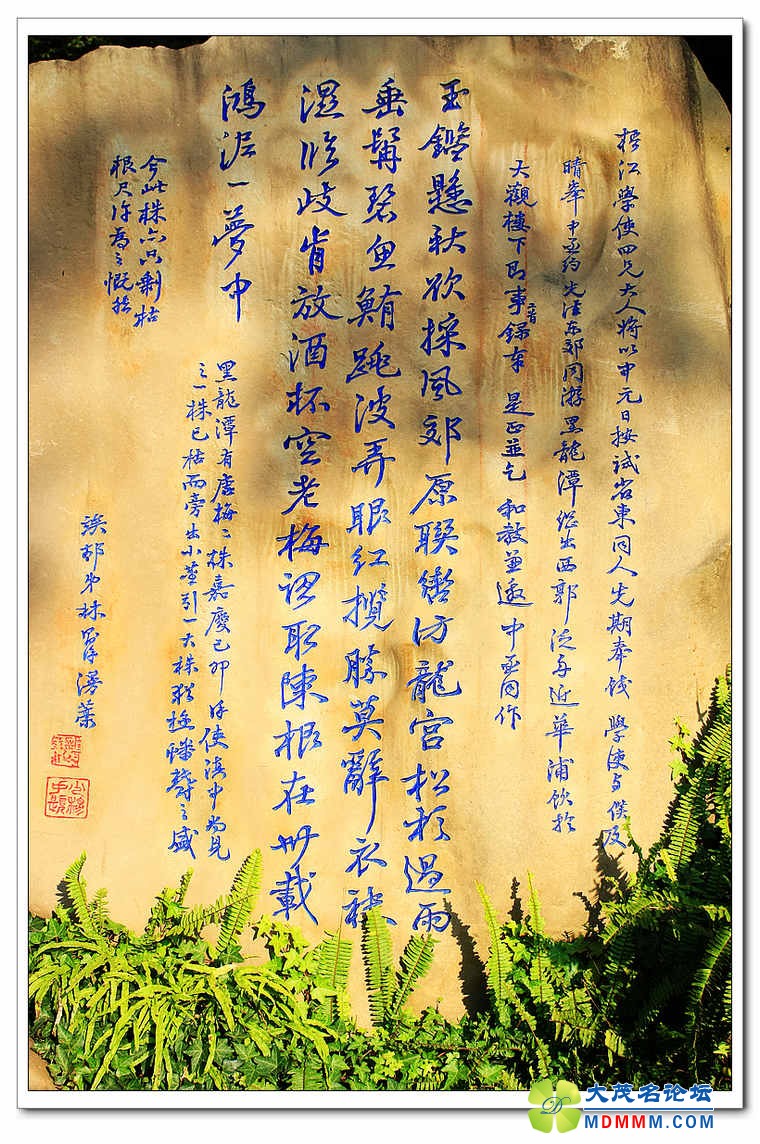 梧江學使四兄大人將以中元日按試省東同人先期奉餞 學使與僕及
晴峯中丞約先清東郊同游黑龍潭繼出西郭泛舟近華浦飲於
大觀樓下即事二首錄奉 是正並乞 和教並邀中丞同作
玉鑑懸秋欲採風郊原聯轡訪龍宮松杉過雨
垂髯碧魚鮪跳波弄眼紅攬勝莫辭衣袂
濕臨歧肯放酒杯空老梅認取陳根在卅載
鴻泥一夢中
黑龍潭有唐梅二株嘉慶己卯 使滇中為見
之一株已枯而旁出小 引一大株 極蟠 之盛
今此株亦只剩枯
根尺許為之慨然
侯邨弟林
大茂名论坛
MDMMM.COM